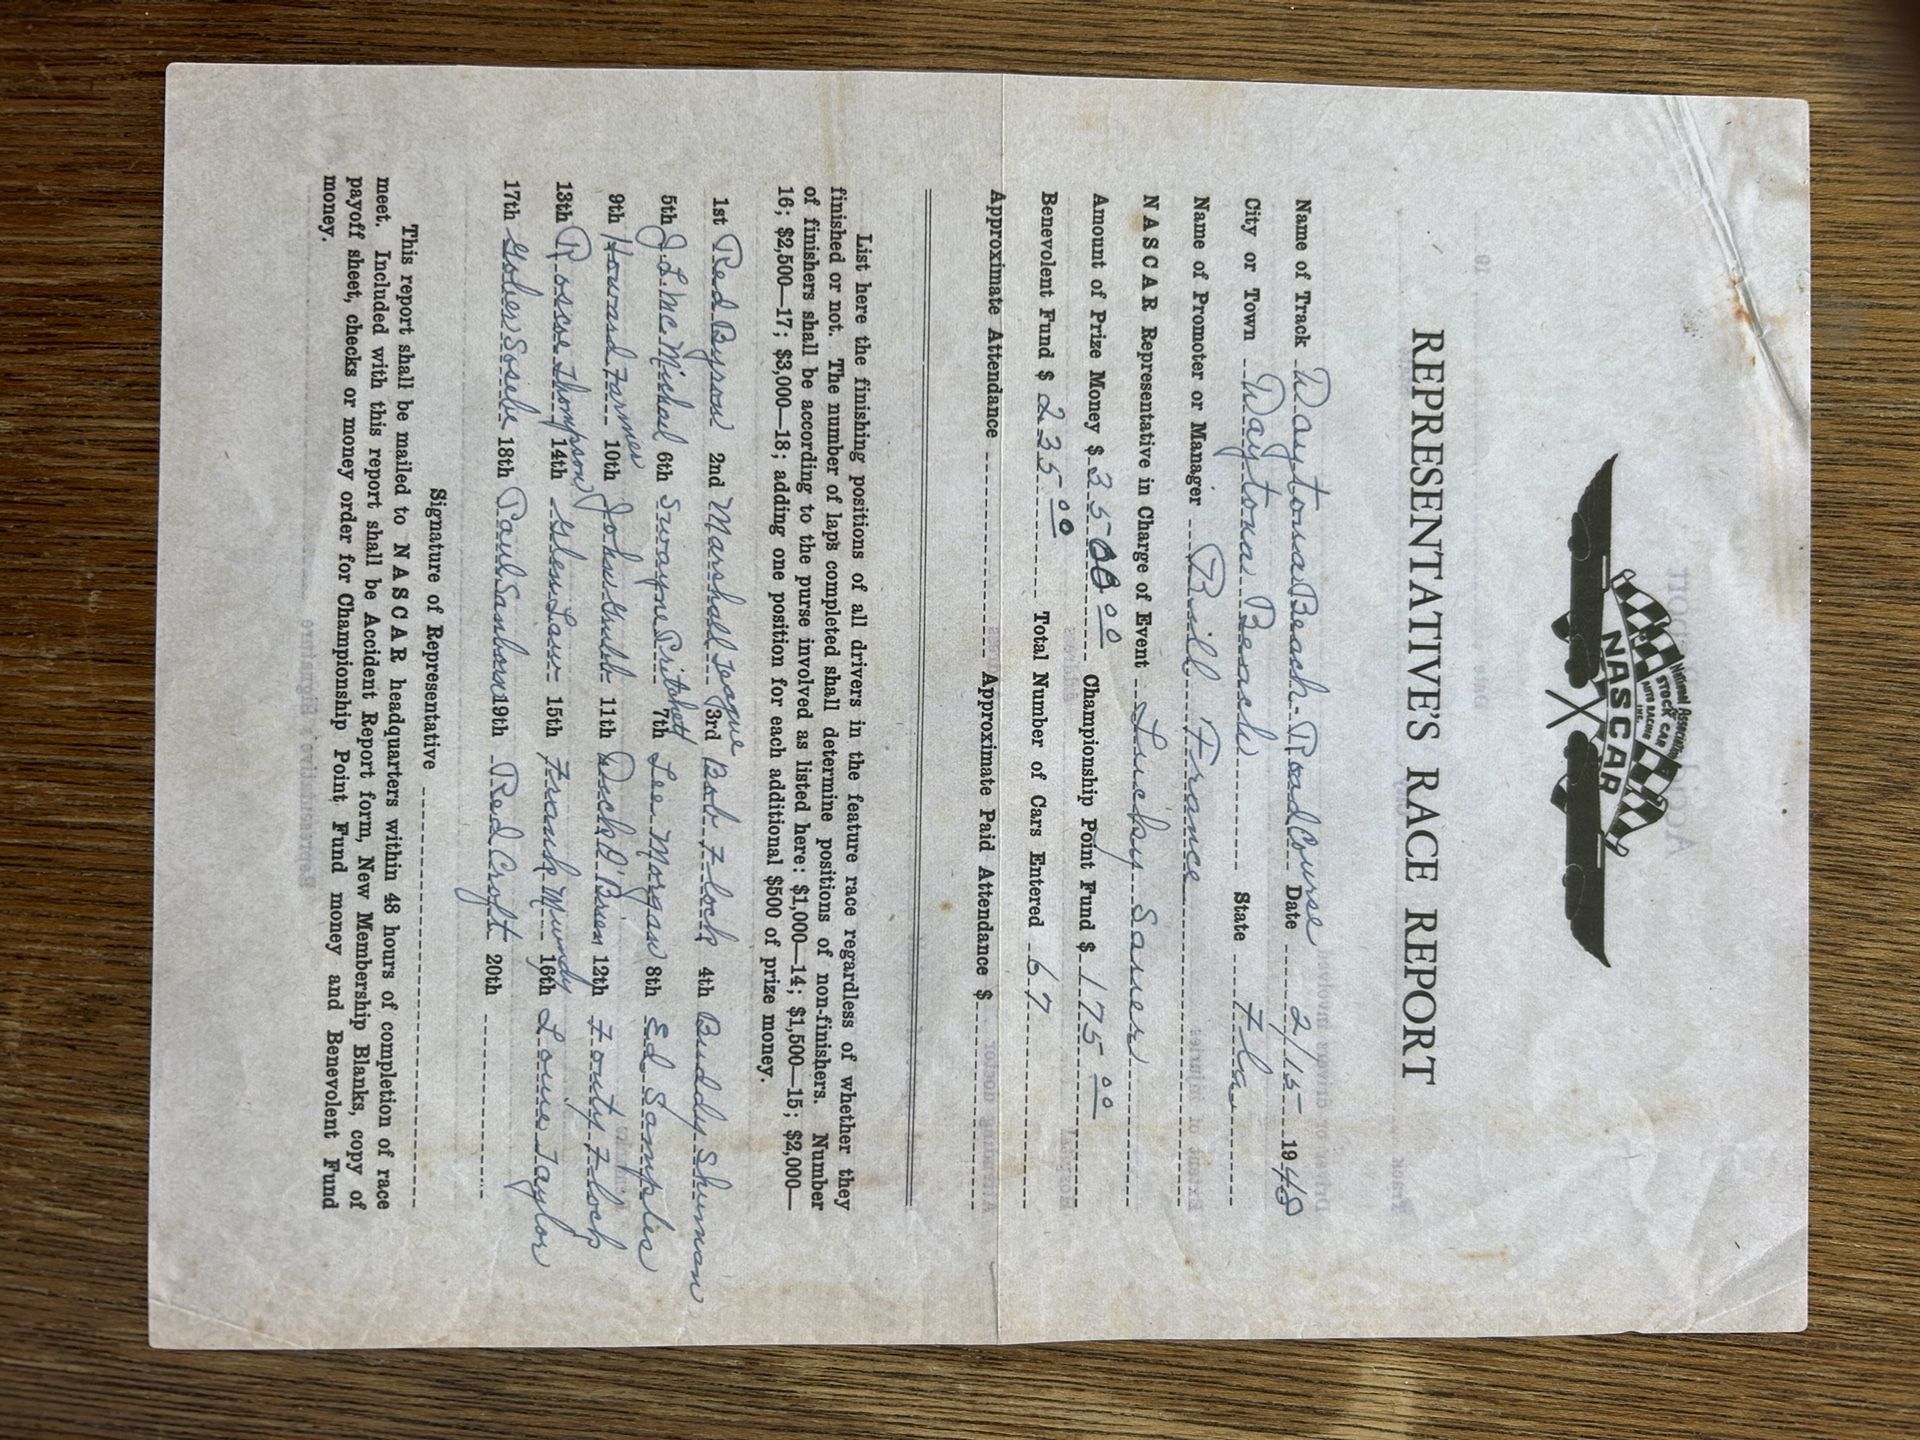 National Association
STOCK CAR
AUTO RACING
INC.
NASCAR
REPRESENTATIVE'S RACE REPORT
Name of Track Daytona Beach-Road Course Date 2/15 1948
City or Town Daytona Beach State Fla
Name of Promoter or Manager Bill France
NASCAR Representative in Charge of Event Luckey Sauer
Amount of Prize Money $ 3500.00 Championship Point Fund $ 175.00
Benevolent Fund $ 235.00 Total Number of Cars Entered 67
Approximate Attendance Approximate Paid Attendance $
List here the finishing positions of all drivers in the feature race regardless of whether they
finished or not. The number of laps completed shall determine positions of non-finishers. Number
of finishers shall be according to the purse involved as listed here: $1,000—14; $1,500—15; $2,000—
16; $2,500—17; $3,000—18; adding one position for each additional $500 of prize money.
1st Red Byron 2nd Marshall Teague 3rd Bob Flock 4th Buddy Shuman
5th J.L. McMichael 6th Swayne Pritchett 7th Lee Morgan 8th Ed Samples
9th Howard Farmer 10th John Grubb 11th Dick O'Brien 12th Fonty Flock
13th Roscoe Thompson 14th Glen Law 15th Frank Mundy 16th Lou Taylor
17th Gober Sosebe 18th Paul Sanborn 19th Red Croft 20th
Signature of Representative
This report shall be mailed to NASCAR headquarters within 48 hours of completion of race
meet. Included with this report shall be Accident Report form, New Membership Blanks, copy of
payoff sheet, checks or money order for Championship Point Fund money and Benevolent Fund
money.